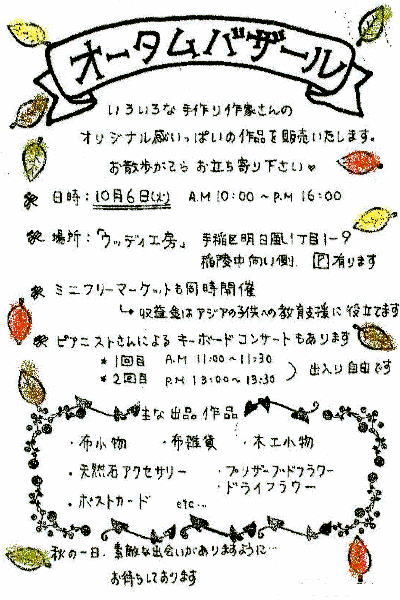 オータムバザール
いろいろな手作り作家さんの
オリジナル感いっぱいの作品を販売いたします。
お散歩がてらお立ち寄り下さい♥
日時：10月6日(火) A.M 10:00 〜 P.M 16:00
場所：「ウッディ工房」 手稲区明日風1丁目1-9
稲陵中向い側. P有ります
ミニフリーマーケットも同時開催
↳ 収益金はアジアの子供への教育支援に役立てます
ピアニストさんによるキーボードコンサートもあります
* 1回目 A.M 11:00〜11:30
* 2回目 P.M 13:00〜13:30 ）出入り自由です
主な出品作品
・布小物 ・布雑貨 ・木工小物
・天然石アクセサリー ・プリザーブドフラワー
・ドライフラワー
・ポストカード etc…
秋の一日、素敵な出会いがありますように…
お待ちしております